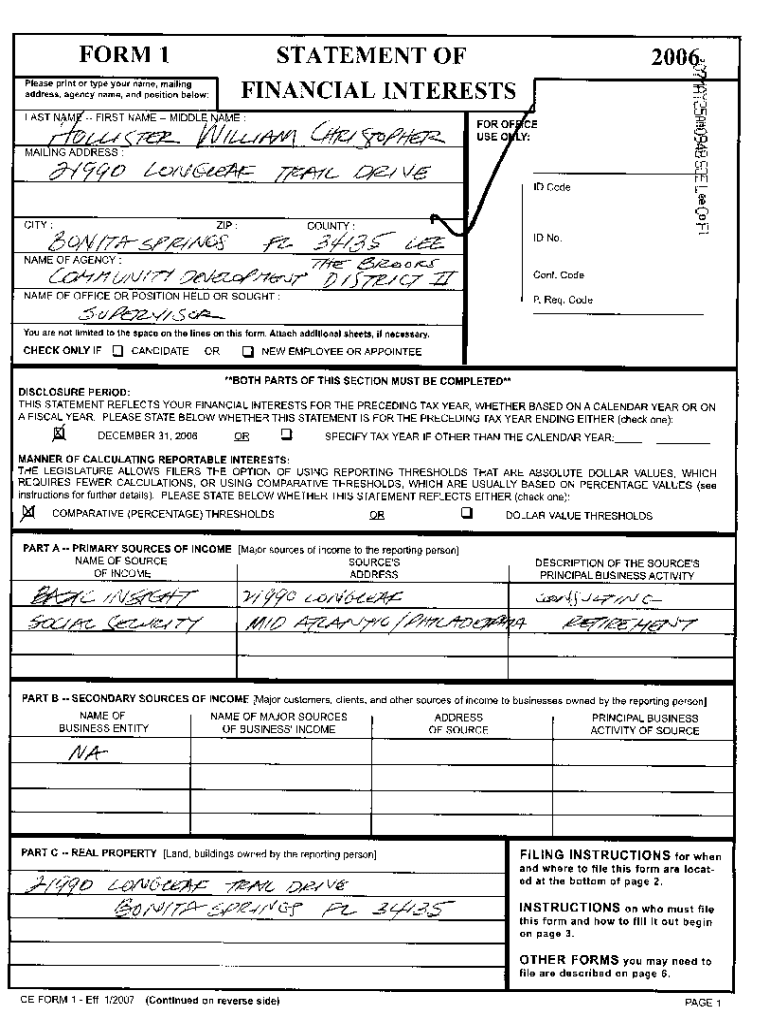 FORM 1 STATEMENT OF 2006
Please print or type your name, mailing
address, agency name, and position below:
FINANCIAL INTERESTS
LAST NAME -- FIRST NAME -- MIDDLE NAME :
HOLLISTER WILLIAM CHRISTOPHER
FOR OFFICE
USE ONLY:
MAILING ADDRESS :
21990 LONGLEAF TRAIL DRIVE
ID Code
CITY : ZIP : COUNTY :
BONITA SPRINGS FL 34135 LEE
ID No.
NAME OF AGENCY : THE BROOKS
COMMUNITY DEVELOPMENT DISTRICT II
Conf. Code
NAME OF OFFICE OR POSITION HELD OR SOUGHT :
P. Req. Code
SUPERVISOR
You are not limited to the space on the lines on this form. Attach additional sheets, if necessary.
CHECK ONLY IF CANDIDATE OR NEW EMPLOYEE OR APPOINTEE
**BOTH PARTS OF THIS SECTION MUST BE COMPLETED**
DISCLOSURE PERIOD:
THIS STATEMENT REFLECTS YOUR FINANCIAL INTERESTS FOR THE PRECEDING TAX YEAR, WHETHER BASED ON A CALENDAR YEAR OR ON
A FISCAL YEAR. PLEASE STATE BELOW WHETHER THIS STATEMENT IS FOR THE PRECEDING TAX YEAR ENDING EITHER (check one):
DECEMBER 31, 2006 OR SPECIFY TAX YEAR IF OTHER THAN THE CALENDAR YEAR:
MANNER OF CALCULATING REPORTABLE INTERESTS:
THE LEGISLATURE ALLOWS FILERS THE OPTION OF USING REPORTING THRESHOLDS THAT ARE ABSOLUTE DOLLAR VALUES, WHICH
REQUIRES FEWER CALCULATIONS, OR USING COMPARATIVE THRESHOLDS, WHICH ARE USUALLY BASED ON PERCENTAGE VALUES (see
instructions for further details). PLEASE STATE BELOW WHETHER THIS STATEMENT REFLECTS EITHER (check one):
COMPARATIVE (PERCENTAGE) THRESHOLDS OR DOLLAR VALUE THRESHOLDS
PART A -- PRIMARY SOURCES OF INCOME [Major sources of income to the reporting person]
NAME OF SOURCE SOURCE'S DESCRIPTION OF THE SOURCE'S
OF INCOME ADDRESS PRINCIPAL BUSINESS ACTIVITY
BASIC INSIGHT 21990 LONGLEAF CONSULTING
SOCIAL SECURITY MID ATLANTIC/PHILADELPHIA RETIREMENT
PART B -- SECONDARY SOURCES OF INCOME [Major customers, clients, and other sources of income to businesses owned by the reporting person]
NAME OF NAME OF MAJOR SOURCES ADDRESS PRINCIPAL BUSINESS
BUSINESS ENTITY OF BUSINESS' INCOME OF SOURCE ACTIVITY OF SOURCE
NA
PART C -- REAL PROPERTY [Land, buildings owned by the reporting person]
21990 LONGLEAF TRAIL DRIVE
BONITA SPRINGS FL 34135
FILING INSTRUCTIONS for when
and where to file this form are locat-
ed at the bottom of page 2.
INSTRUCTIONS on who must file
this form and how to fill it out begin
on page 3.
OTHER FORMS you may need to
file are described on page 6.
CE FORM 1 - Eff. 1/2007 (Continued on reverse side) PAGE 1